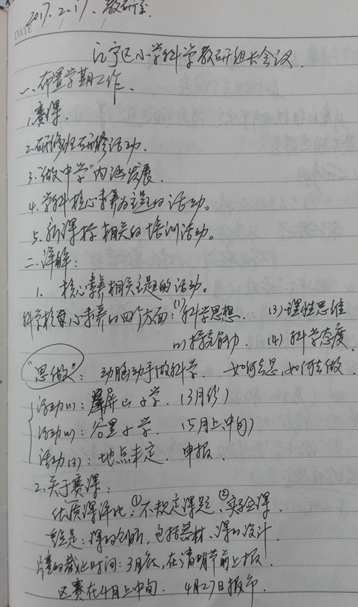 2017.2.17. 教研室
DATE
江宁区小学科学教研组长会议.
一.布置学期工作.
1.赛课.
2.研修班研修活动.
3."做中学"内涵发展.
4.学科核心素养为主题的活动。
5.新课标相关的培训活动。
二.详解:
1.核心素养相关主题的活动。
科学核心素养的四个方面:(1)科学思想. (3)理性思维
(2)探究能力. (4)科学态度.
"思做":动脑动手做科学. 如何思,如何做
活动(1):屏山小学.(3月份)
活动(2):谷里小学.(5月上中旬)
活动(3):地点未定. 申报.
2.关于赛课:
优质课评比:①不规定课题,②实验课.
重点是:课的创新,包括器材、课的设计.
的截止时间:3月底,在清明节前上报.
区赛在4月上中旬. 4月27日